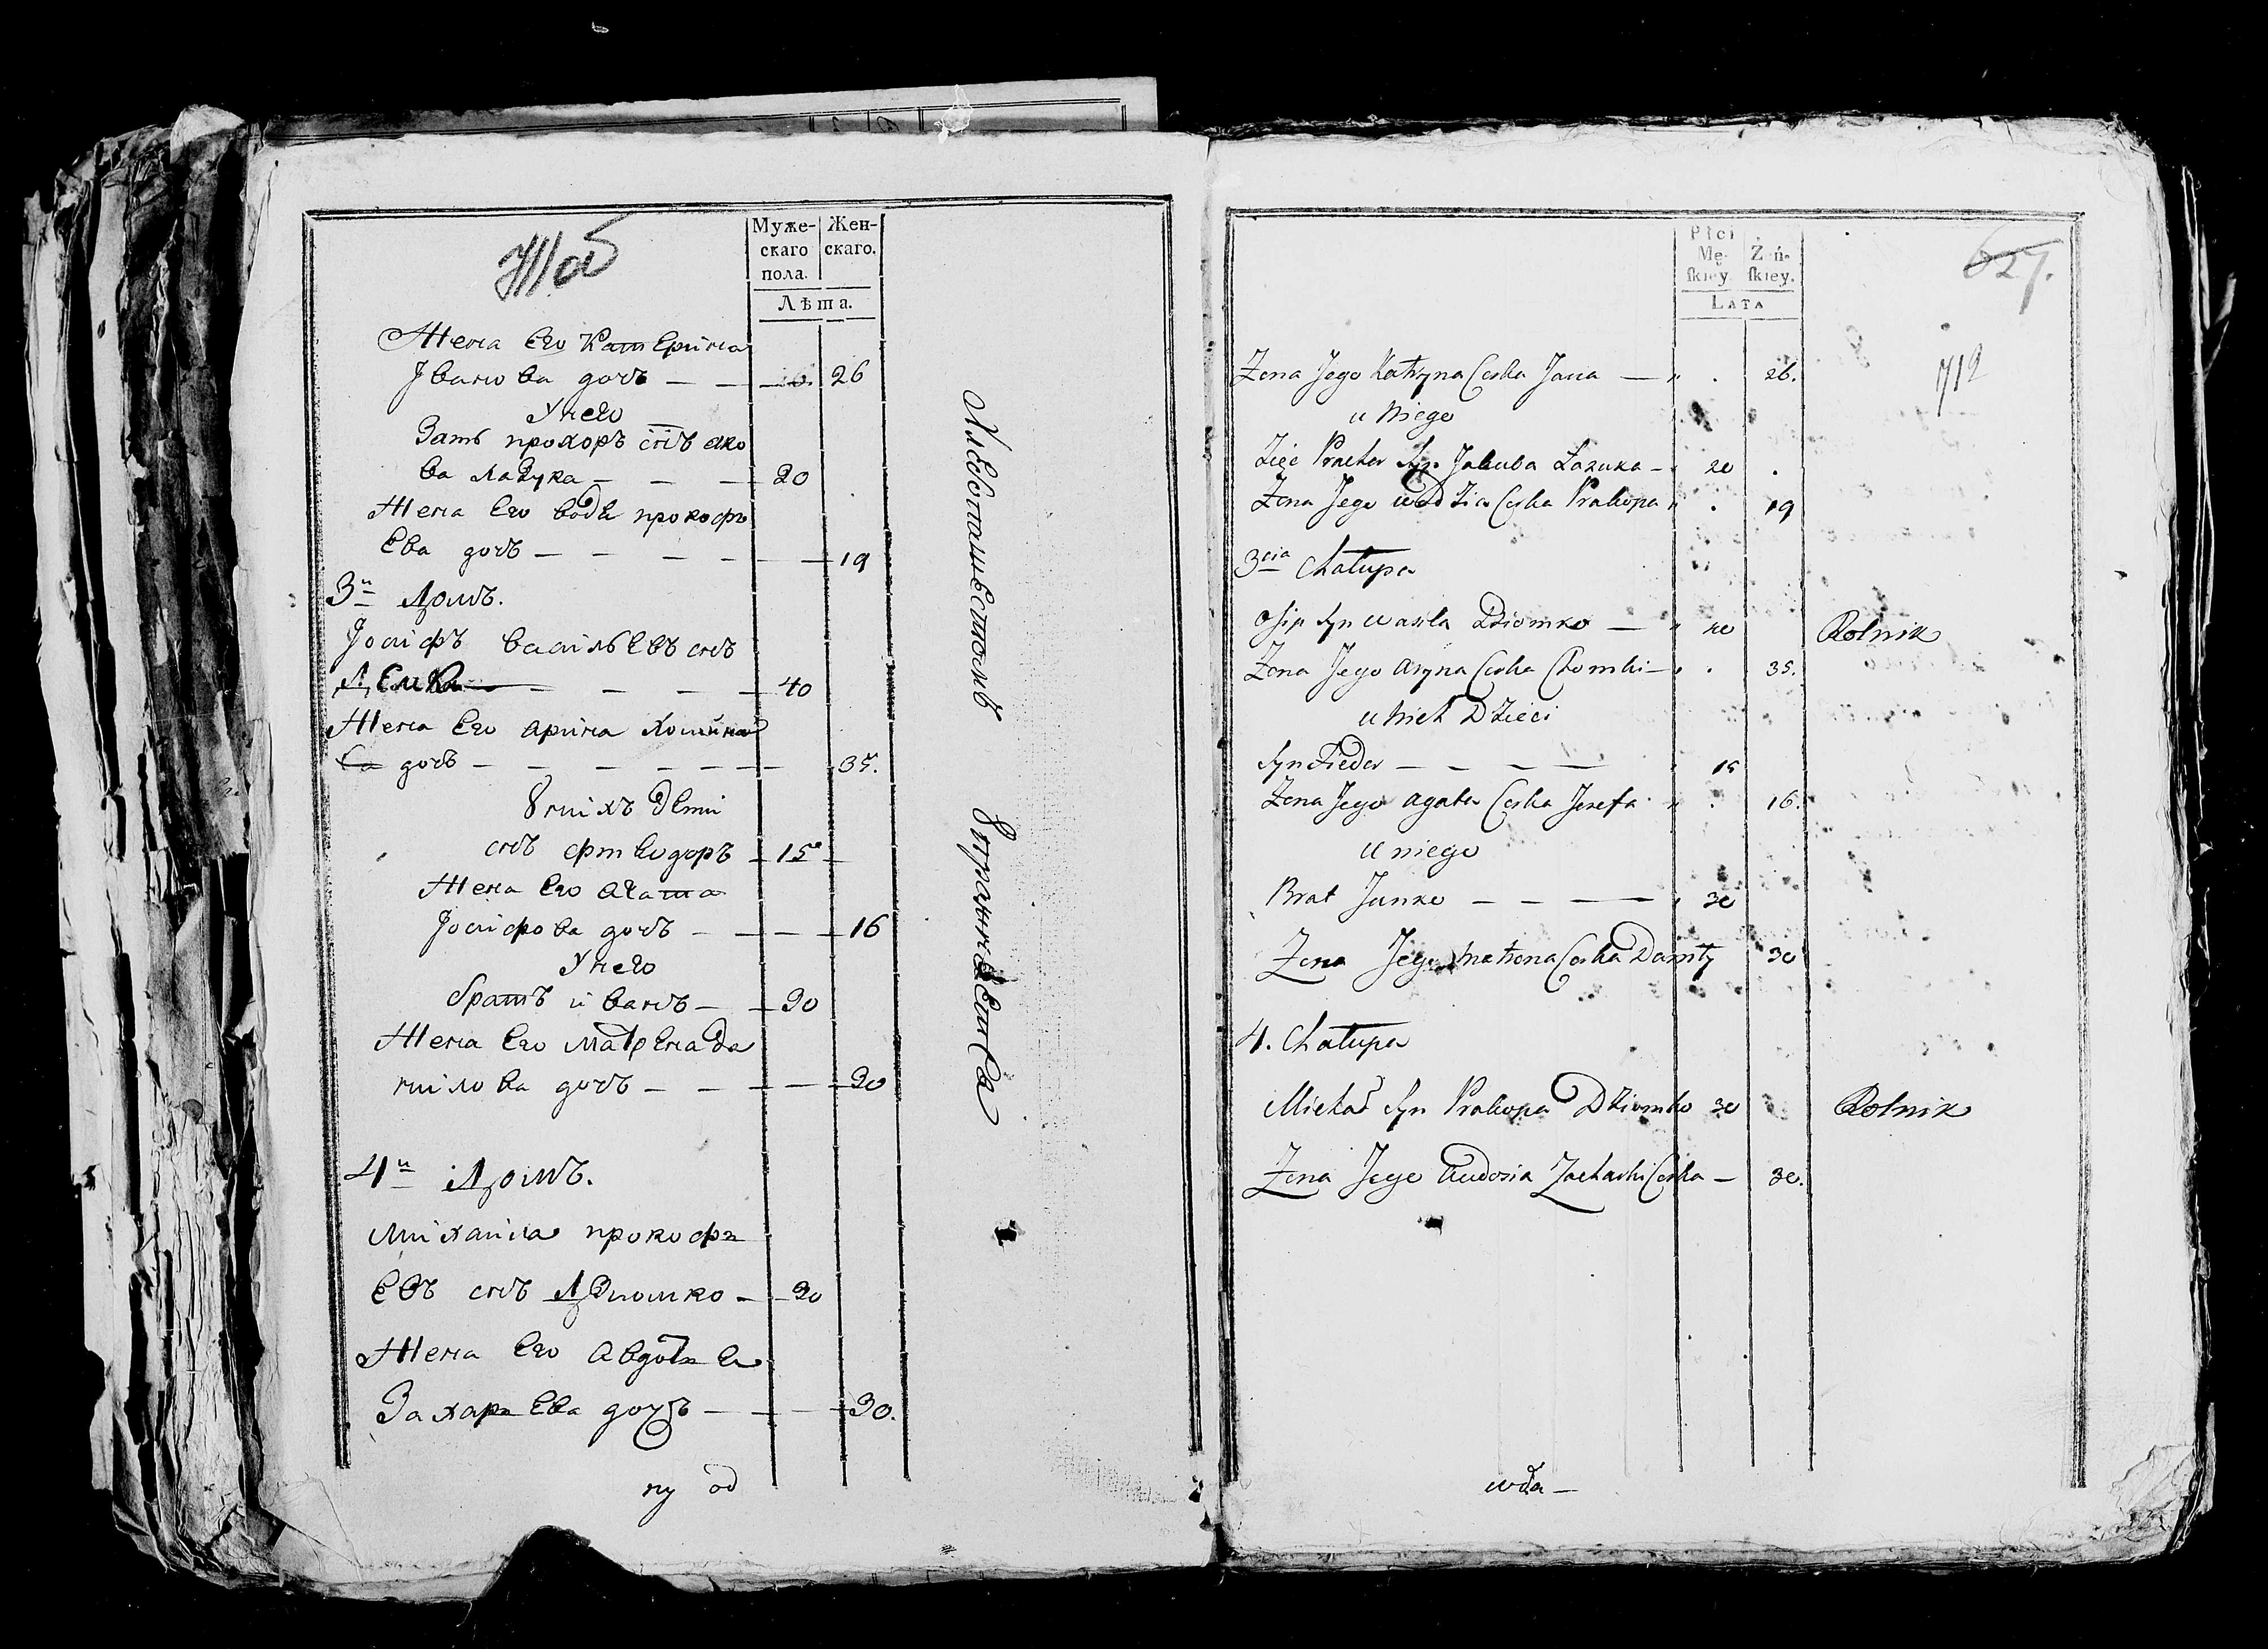 Муже-
скаго
пола.
Жен-
скаго.
Лѣта.
Жена Его Катерина
Іванова дочъ — — 26
У него
Зять прохоръ снъ яко
ва лазука — — — 20
Жена Его прокофь
Ева дочъ — — — — 19
3й Домъ.
Іосифъ васильЕвъ снъ
ДЕмка — — — — 40
Жена Его арина
ва дочъ — — — — — 35.
У нихъ дети
снъ — 15
Жена Его агата
Іосифова дочъ — — — 16
У него
братъ иванъ — — 30
Жена Его матрЕна да
нилова дочъ — — — — 30
4й Домъ.
михаила прокофь
Евъ снъ Дзюмко — — 30
Жена Его авдотья
ЗахарьЕва дочъ — — — 30.
Хлебопашествомъ
Упражняется
Płci
Mę-
skiey.
Żeń-
skiey.
LATA
627.
712
Zona Jego Katrzyna Corka Jana — " . 26.
u Niego
Zięć Syn Jakuba Łazuka — " 20 .
Zona Jego Corka Prakopa " . 19
3cia Chałupa
Osip Syn Wasila Dziomko — " 40 Rolnik
Zona Jego Aryna Corka Chomki — " . 35.
u Nich Dzieci
Syn Fiedor — — — — " 15
Zona Jego Agata Corka Jozefa " . 16.
u niego
Brat Janko — — — — " 30
Zona Jego Matrona Corka Daniły 30
4. Chałupa
Michał Syn Prakopa Dziomko 30 Rolnik
Zona Jego Audosia Zacharki Corka — 30.
wda —